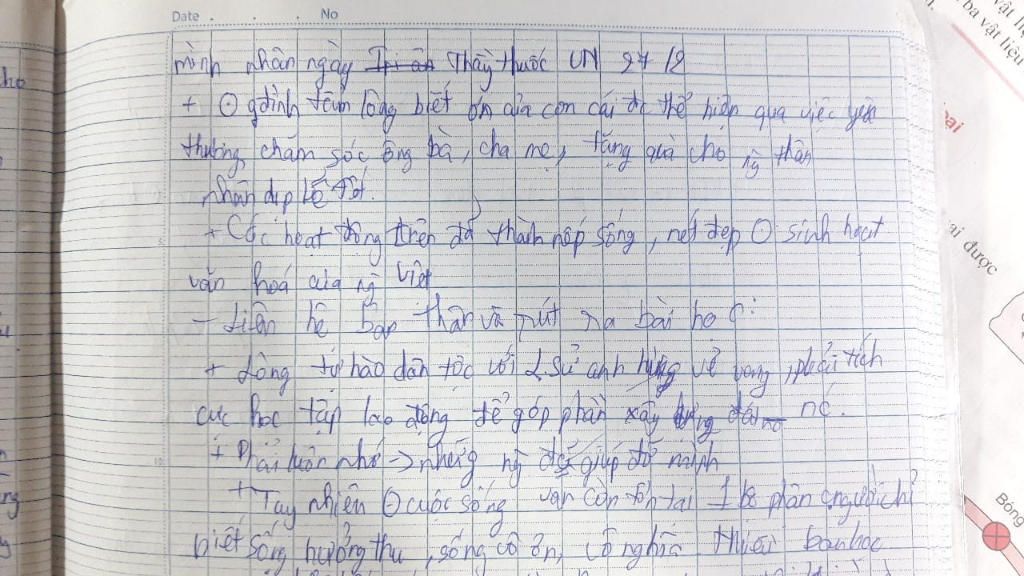 Date . . . No
mình nhân ngày Tri ân Thầy thuốc VN 27/2
+ O gđình tấm lòng biết ơn của con cái đc thể hiện qua việc yêu
thương, chăm sóc ông bà, cha mẹ, tặng quà cho ng thân
nhân dịp Lễ Tết.
+ Các hoạt động trên đã thành nếp sống, nét đẹp O sinh hoạt
văn hoá của ng Việt
- Liên hệ bản thân và rút ra bài học:
+ Lòng tự hào dân tộc với L sử anh hùng vẻ vang, phải tích
cực học tập lao động để góp phần xây dựng đất nc.
+ Phải luôn nhớ → những ng đã giúp đỡ mình
+ Tuy nhiên O cuộc sống vẫn còn tồn tại 1 bộ phận người chỉ
biết sống hưởng thụ, sống vô ơn, vô nghĩa
ba vật liệu
ai được
Bóng